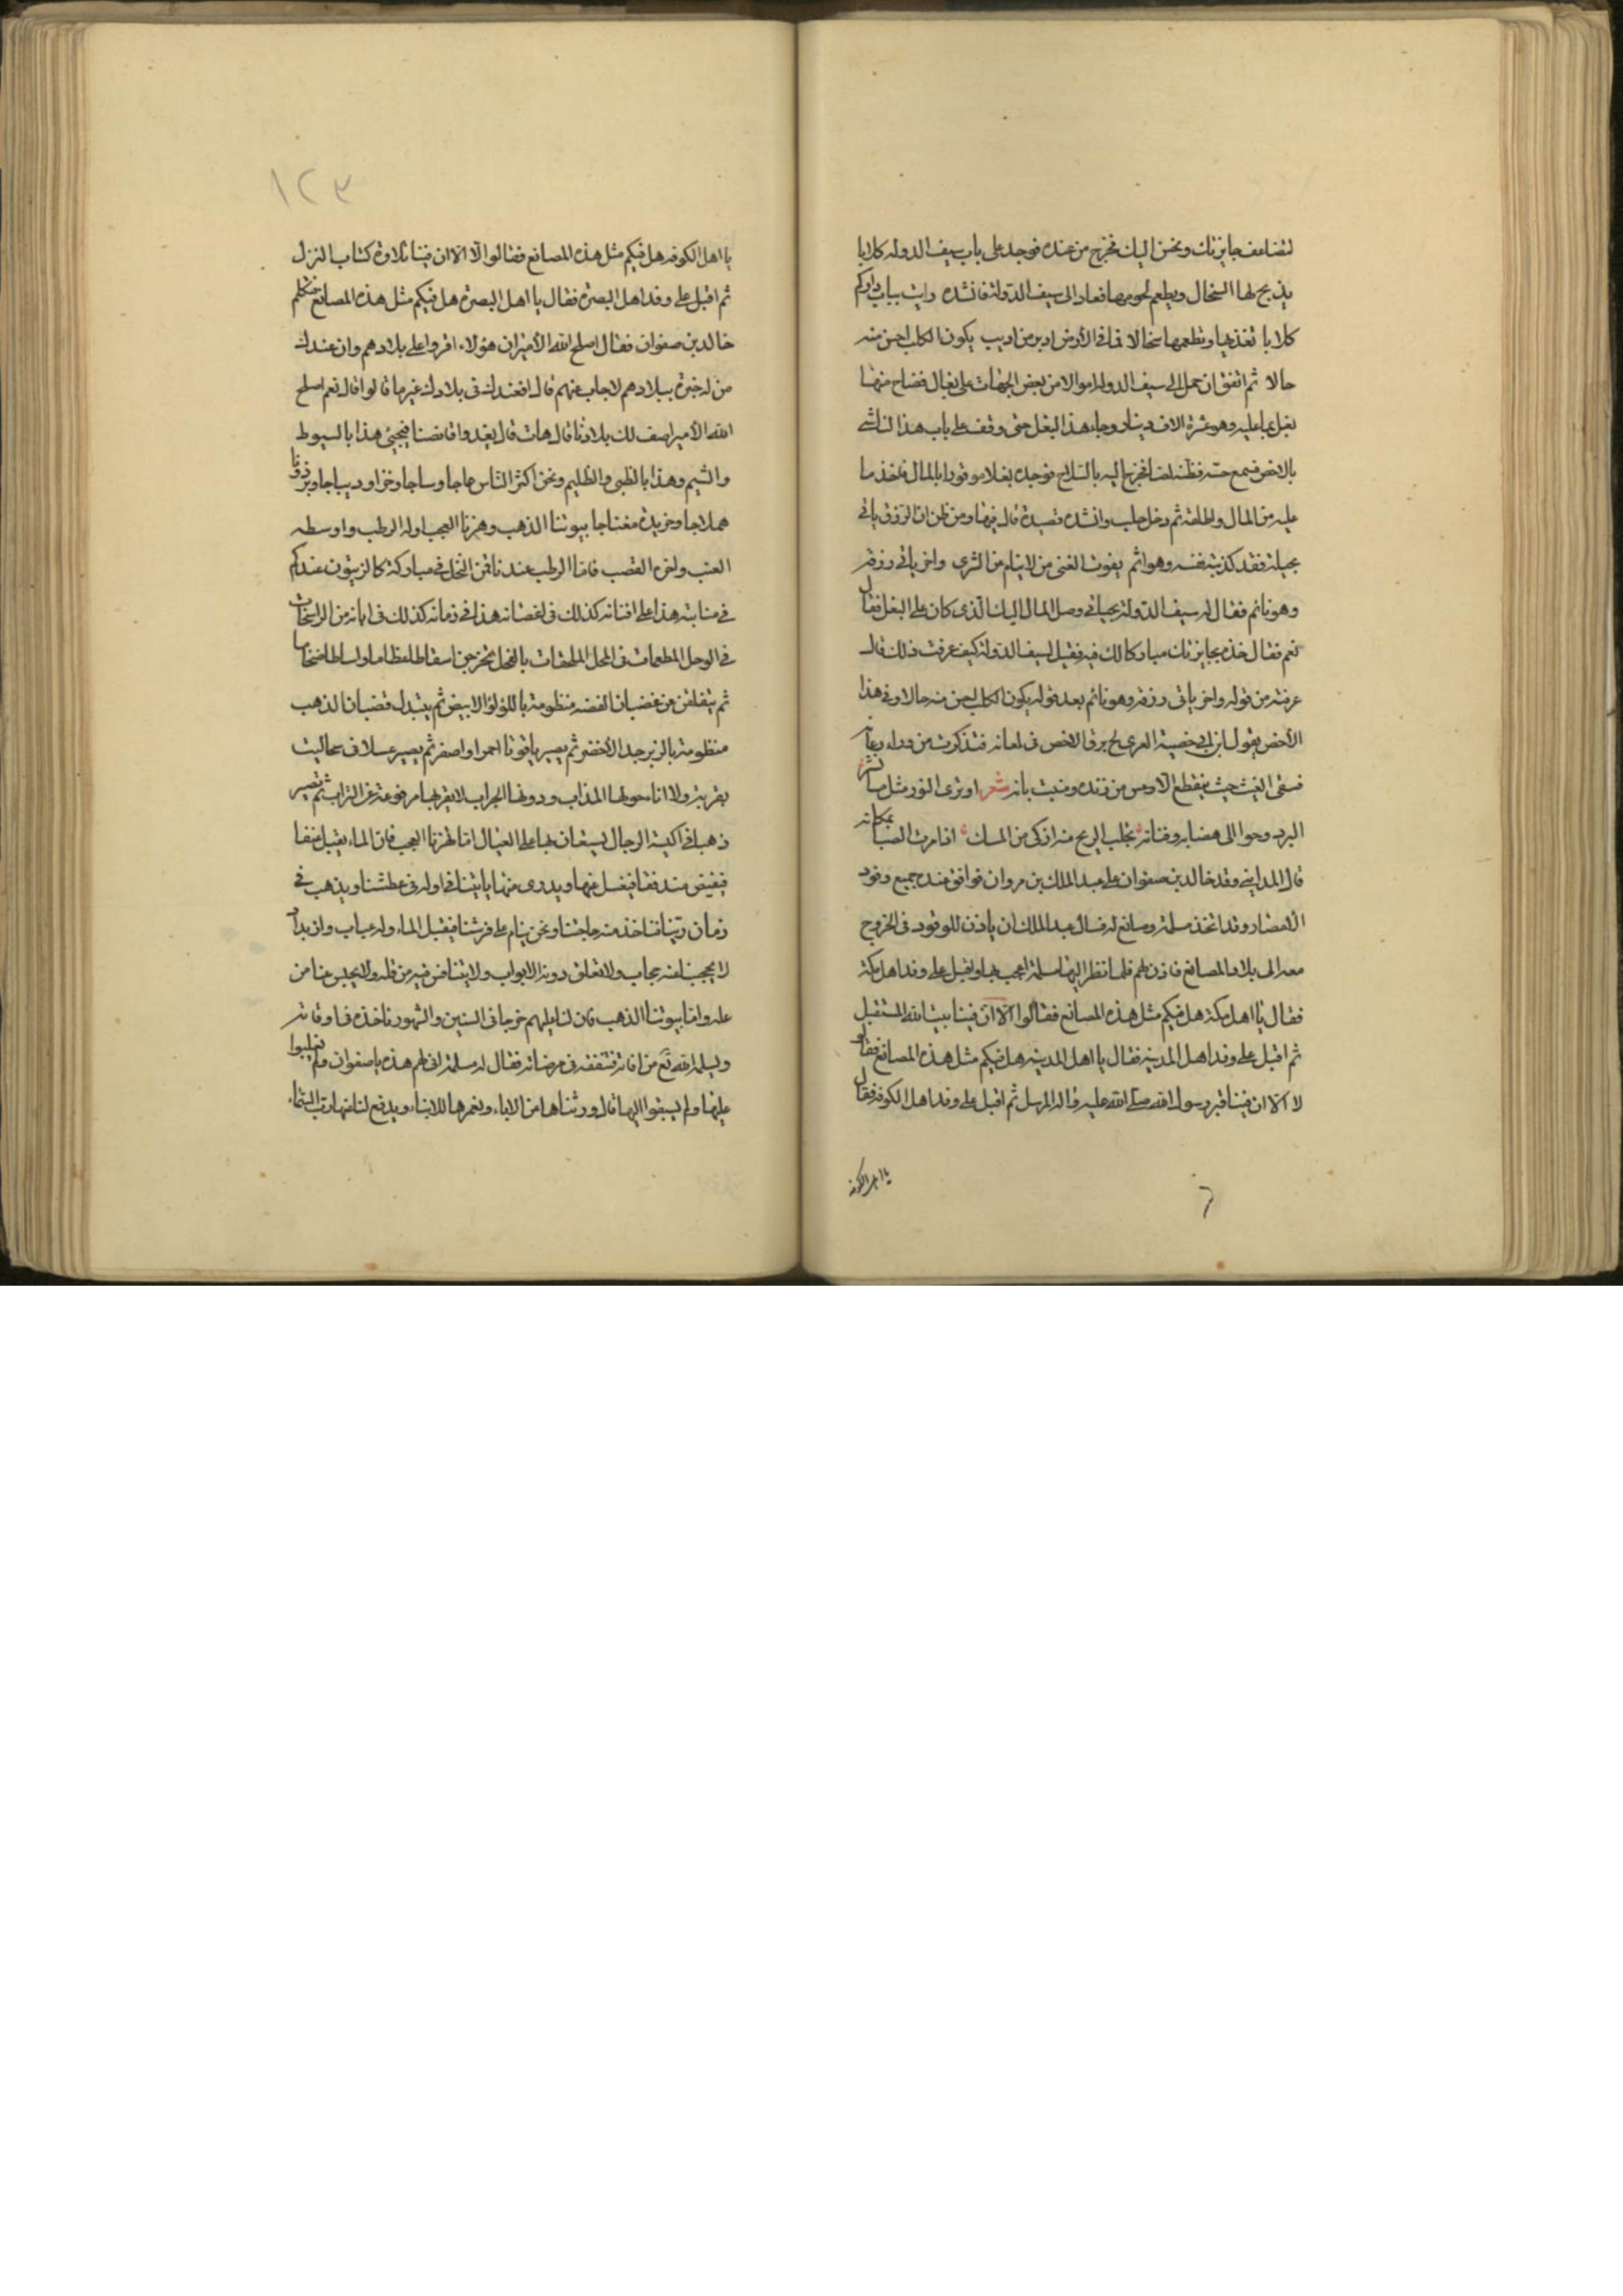 لتضاعف جايزتك ونحسن اليك فخرج من عنده فوجد على باب سيف الدوله كلابا
يذبح لها السخال ويطعم لحومها فعاد الى سيف الدولة فانشده رايت بباب داركم
كلابا تغذيها وتطعمها سخالا فما فى الأرض ادبر من اديب يكون الكلب احسن منه
حالا ثم اتفق ان حمل الى سيف الدوله اموالا من بعض الجهات على بغال فضاع منها
بغل بما عليه وهو عشرة الاف دينار وجاء هذا البغل حتى وقف على باب هذا الناشى
بالاخص فسمع حسه فظنه لصا فخرج اليه بالسلاح فوجده بغلا موقورا بالمال فاخذ ما
عليه من المال واطلقه ثم دخل حلب وانشده قصيدة قال فيها ومن ظن ان الرزق ياتى
بحيلة فقد كذبته نفسه وهو اثم يفوت الغنى من لا ينام من السرى واخر ياتى رزقه
وهو نائم فقال له سيف الدولة بحياتى وصل المال اليك الذى كان على البغل فقال
نعم فقال خذه بجايزتك مباركا لك فيه فقيل لسيف الدولة كيف عرفت ذلك قال
عرفته من قوله واخر ياتى رزقه وهو نائم بعد قوله يكون الكلب احسن منه حالا وفى هذا
الأخص يقول ابن ابى حصينة المعرى لج برق الاخص فى لمعانه فتذكرت من وراء رعانه
فسقى الغيث حيث ينقطع الاوعس من رنده ومنبت بانه شعر او ترى النور مثل ما نشر
البرد وحوا الى هضابه وقنانه تجلب الريح منه ازكى من المسك اذا مرت الصبا بمكانه
قال المداينى وفد خالد بن صفوان على عبد الملك بن مروان فوافق عنده جميع وفود
الأمصار وقد اتخذ مسلمة مصانع له فسال عبد الملك ان ياذن للوفود فى الخروج
معه الى بلاد المصانع فاذن لهم فلما نظر اليها مسلمة اعجب بها واقبل على وفد اهل مكة
فقال يا اهل مكة هل فيكم مثل هذه المصانع فقالوا لا الا ان فينا بيت الله المستقبل
ثم اقبل على وفد اهل المدينه فقال يا اهل المدينه هل فيكم مثل هذه المصانع فقالوا
لا الا ان فينا قبر رسول الله صلى الله عليه واله المرسل ثم اقبل على وفد اهل الكوفه فقال
يا اهل الكوفه
١٢٣
يا اهل الكوفه هل فيكم مثل هذه المصانع فقالوا لا الا ان فينا تلاوة كتاب المنزل
ثم اقبل على وفد اهل البصرة فقال يا اهل البصرة هل فيكم مثل هذه المصانع فتكلم
خالد بن صفوان فقال اصلح الله الأمير ان هولاء اقروا على بلادهم وان عندك
من له خبرة ببلادهم لاجاب عنهم قال افعندك فى بلادك غير ما قالوا قال نعم اصلح
الله الأمير اصف لك بلادنا قال هات قال يغدوا قانصنا فيجيئ هذا بالسبوط
والشيم وهذا بالظبى والظليم ونحن اكثر الناس عاجا وساجا وخزا وديباجا وبرذونا
هملاجا وخريدة مغناجا بيوتنا الذهب ونهرنا العجب اوله الرطب واوسطه
العنب واخره القصب فاما الرطب عندنا فمن النخل فى مباركة كالزيتون عندكم
فى منابته هذا على افنانه كذلك فى اغصانه هذا فى زمانه كذلك فى ابانه من الراسخات
فى الوحل المطعمات فى المحل الملحقات بالفحل يخرجن اسقاطا عظاما واوساطا ضخاما
ثم يتفلقن عن غضبان الفضه منظومة باللؤلؤ الابيض ثم يتبدل قضبان الذهب
منظومة بالزبرجد الأخضر ثم يصير ياقوتا احمرا واصفر ثم يصير عسلا فى سحاليت
بقربة ولا اناء حولها المذاب ودونها الجراب لا يقربها مرفوعة عن التراب ثم تصير
ذهبا فى اكيسة الرجال يستعان بها على العيال اما نهرنا العجب فان الماء يقبل عنفا
فيفيض مندفقا فيغسل غثها ويدوى منها ياتينا فى اوله فى عطشنا ويذهب فى
زمان رينا فناخذ منه حاجتنا ونحن ينام على فرشنا فيقبل الماء وله عباب وازبداد
لا يحجبنا عنه حجاب ولا تغلق دونه الابواب ولا يتنافس فيه من قله ولا يحبس عنا من
عله واما بيوتنا الذهب فان لنا عليهم خرجا فى السنين والشهور ناخذه فى اوقاته
ويسلمه الله تع من افاته فننفقه فى مرضاته فقال له مسلمة انى لهم هذه يا صفوان ولم تغلبوا
عليها ولم يسبقوا اليها قال ورثناها من الاباء ونعمرها للابناء ويدفع لنا عنها رب السماء